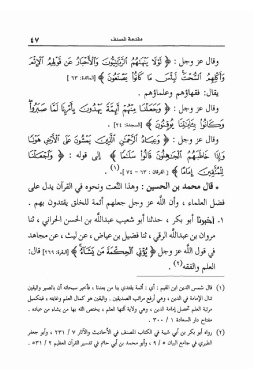 مقدمة المصنف
٤٧
وقال عز وجل : ﴿ لَوْلَا يَنْهَاهُمُ الرَّبَّانِيُّونَ وَالْأَحْبَارُ عَن قَوْلِهِمُ الْإِثْمَ
وَأَكْلِهِمُ السُّحْتَ لَبِئْسَ مَا كَانُوا يَصْنَعُونَ ﴾ [المائدة: ٦٣]
يقال: فقهاؤهم وعلماؤهم .
وقال عز وجل : ﴿ وَجَعَلْنَا مِنْهُمْ أَئِمَّةً يَهْدُونَ بِأَمْرِنَا لَمَّا صَبَرُوا
وَكَانُوا بِآيَاتِنَا يُوقِنُونَ ﴾ [السجدة: ٢٤] .
وقال عز وجل : ﴿ وَعِبَادُ الرَّحْمَٰنِ الَّذِينَ يَمْشُونَ عَلَى الْأَرْضِ هَوْنًا
وَإِذَا خَاطَبَهُمُ الْجَاهِلُونَ قَالُوا سَلَامًا ﴾ إلى قوله : ﴿ وَاجْعَلْنَا
لِلْمُتَّقِينَ إِمَامًا ﴾ [الفرقان : ٦٣ - ٧٤] . (١)
• قال محمد بن الحسين : وهذا النَّعت ونحوه في القرآن يدل على
فضل العلماء ، وأن الله عز وجل جعلهم أئمة للخلق يقتدون بهم .
١- أخبرنا أبو بكر ، حدثنا أبو شعيب عبدالله بن الحسن الحراني ، ثنا
مروان بن عبدالله الرقي ، ثنا فضيل بن عياض ، عن ليث ، عن مجاهد
في قول الله عز وجل ﴿ يُؤْتِي الْحِكْمَةَ مَن يَشَاءُ ﴾ [البقرة: ٢٦٩] قال:
العلم والفقه (٢) .
(١) قال شمس الدين ابن القيم : أي : أئمة يقتدي بنا من بعدنا ، فأخبر سبحانه أن بالصبر واليقين
تنال الإمامة في الدين ، وهي أرفع مراتب الصديقين . واليقين هو كمال العلم وغايته ، فبتكميل
مرتبة العلم تحصل إمامة الدين ، وهي ولاية آلتها العلم ، يختص الله بها من يشاء من عباده .
مفتاح دار السعادة ١ / ٣٠٠ .
(٢) رواه أبو بكر بن أبي شيبة في الكتاب المصنف في الأحاديث والآثار ٧ / ٢٣١ ، وأبو جعفر
الطبري في جامع البيان ٥ / ٩ ، وأبو محمد بن أبي حاتم في تفسير القرآن العظيم ٢ / ٥٣١ .